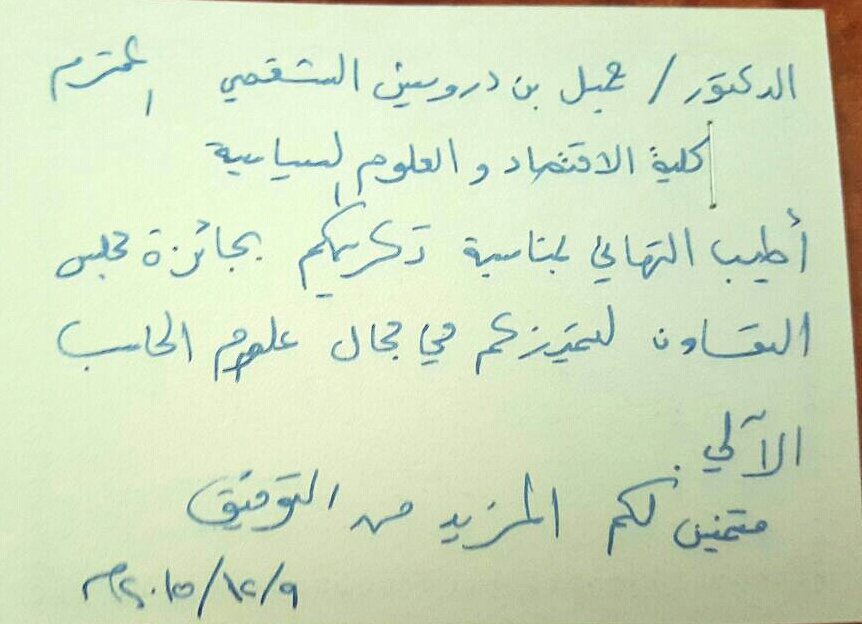 الدكتور / جميل بن درويش الشقصي المحترم
كلية الاقتصاد والعلوم السياسية
أطيب التهاني بمناسبة تكريمكم بجائزة مجلس
التعاون لتميزكم في مجال علوم الحاسب
الآلي.
متمنين لكم المزيد من التوفيق
٩/١٢/٢٠١٥م